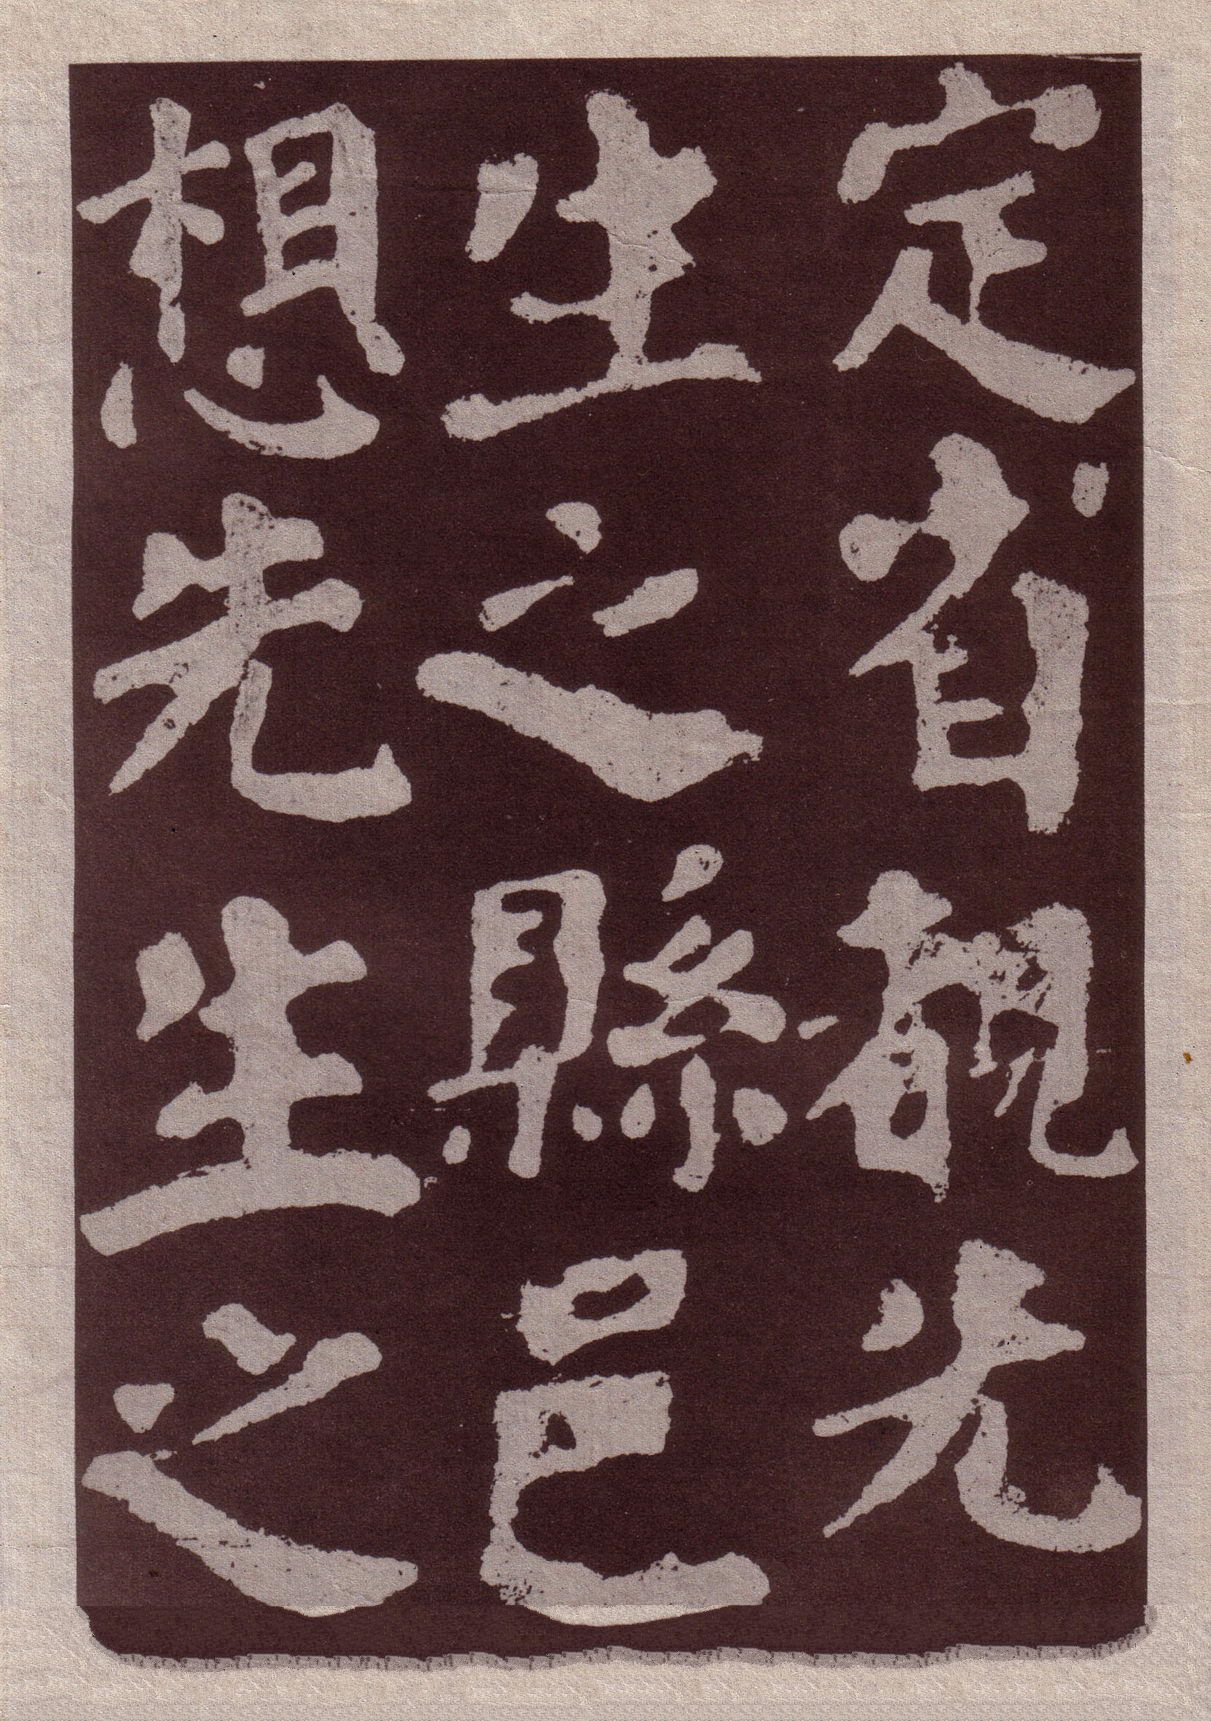 定省覩先
生之縣邑
想先生之